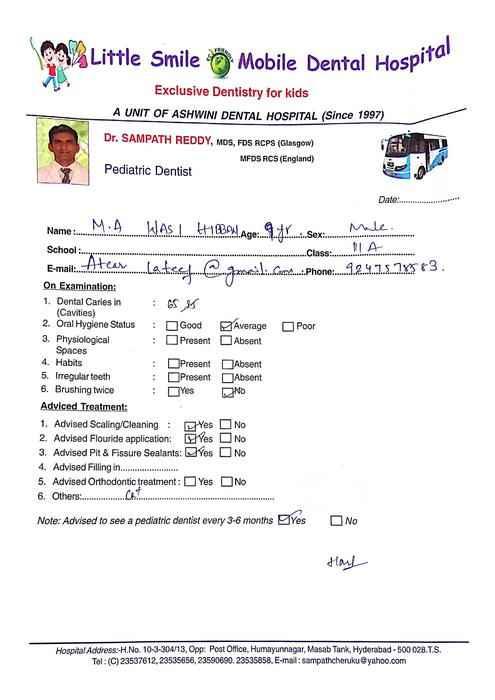 Little Smile Mobile Dental Hospital
Exclusive Dentistry for kids
A UNIT OF ASHWINI DENTAL HOSPITAL (Since 1997)
Dr. SAMPATH REDDY, MDS, FDS RCPS (Glasgow)
MFDS RCS (England)
Pediatric Dentist
Date:
Name: M.A WASI HIBBAN Age: 9 yr Sex: Male
School: Class: III A
E-mail: Atear Lateef @gmail.com Phone: 9247578583.
On Examination:
1. Dental Caries in (Cavities) : 65 85
2. Oral Hygiene Status : Good Average Poor
3. Physiological Spaces : Present Absent
4. Habits : Present Absent
5. Irregular teeth : Present Absent
6. Brushing twice : Yes No
Adviced Treatment:
1. Advised Scaling/Cleaning : Yes No
2. Advised Flouride application: Yes No
3. Advised Pit & Fissure Sealants: Yes No
4. Advised Filling in
5. Advised Orthodontic treatment : Yes No
6. Others:
Note: Advised to see a pediatric dentist every 3-6 months Yes No
Hospital Address:-H.No. 10-3-304/13, Opp: Post Office, Humayunnagar, Masab Tank, Hyderabad - 500 028.T.S.
Tel : (C) 23537612, 23535656, 23590690. 23535858, E-mail : sampathcheruku@yahoo.com